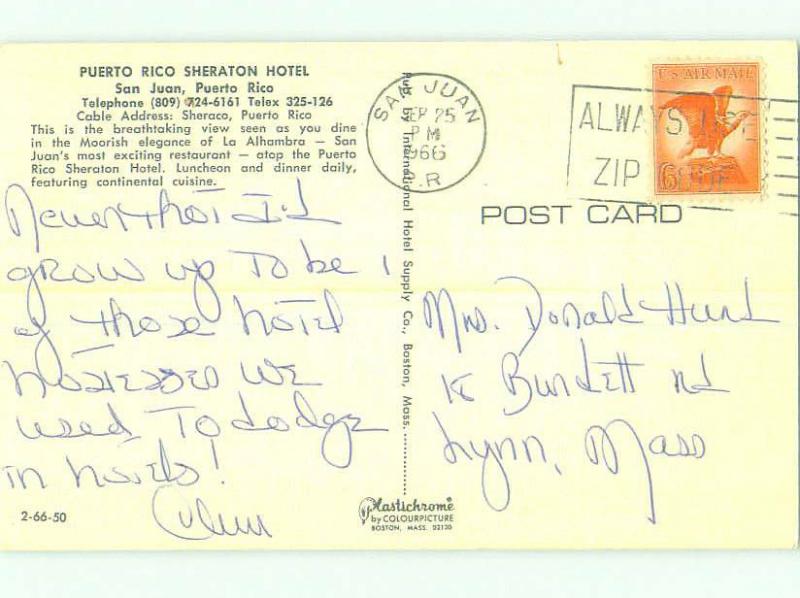 PUERTO RICO SHERATON HOTEL
San Juan, Puerto Rico
Telephone (809) 724-6161 Telex 325-126
Cable Address: Sheraco, Puerto Rico
This is the breathtaking view seen as you dine
in the Moorish elegance of La Alhambra — San
Juan's most exciting restaurant — atop the Puerto
Rico Sheraton Hotel. Luncheon and dinner daily,
featuring continental cuisine.
Never thot I'd
grow up to be 1
of those hotel
hostesses we
used to dodge
in hotels!
2-66-50
Pub. by International Hotel Supply Co., Boston, Mass.
Plastichrome
by COLOURPICTURE
BOSTON, MASS. 02130
SAN JUAN
SEP 25
PM
1966
P.R
ALWAYS USE
ZIP CODE
U S AIR MAIL
6¢
POST CARD
Mrs. Donald Hurd
Burdett Rd
Lynn, Mass